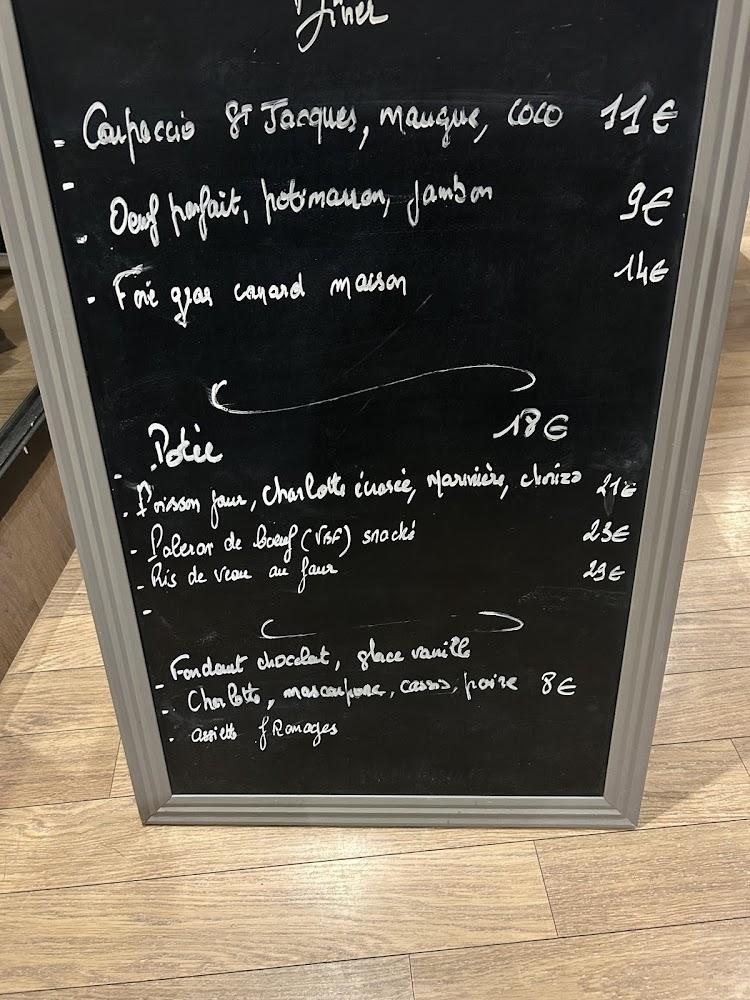 Dîner
- Carpaccio St Jacques, mangue, coco 11€
- Oeuf parfait, potimarron, jambon 9€
- Foie gras canard maison 14€
- Potée 18€
- Poisson jour, Charlotte écrasée, marinière, chorizo 21€
- Paleron de boeuf (VBF) snacké 23€
- Ris de veau au four 29€
- Fondant chocolat, glace vanille
- Charlotte, mascarpone, cassis, poire 8€
- assiette fromages